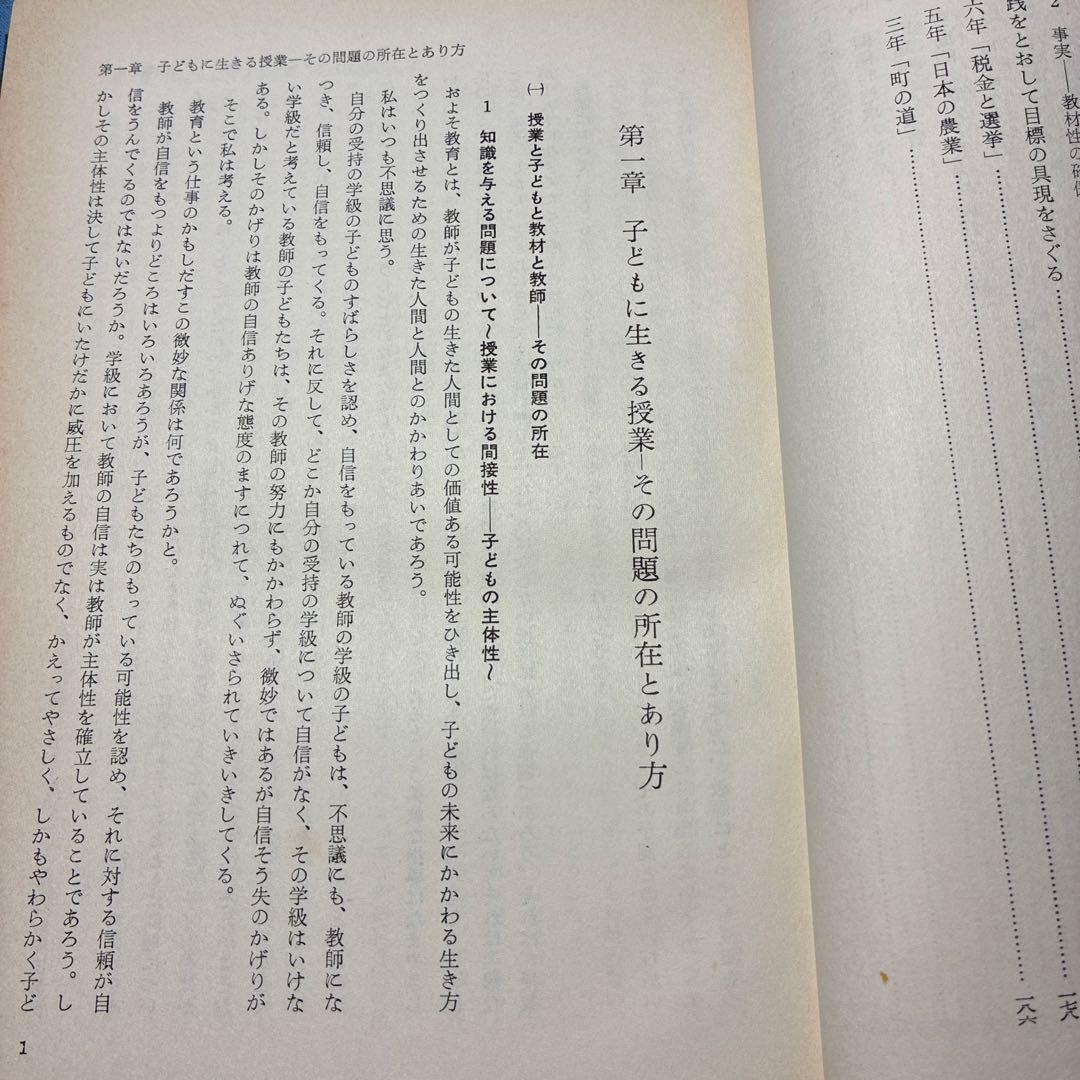 2　事実――教材性の確
践をとおして目標の具現をさぐる……………………一七八
六年「税金と選挙」
五年「日本の農業」……………………一八六
三年「町の道」……………………
第一章　子どもに生きる授業―その問題の所在とあり方
第一章　子どもに生きる授業―その問題の所在とあり方
㈠　授業と子どもと教材と教師――その問題の所在
1　知識を与える問題について～授業における間接性――子どもの主体性～
およそ教育とは、教師が子どもの生きた人間としての価値ある可能性をひき出し、子どもの未来にかかわる生き方
をつくり出させるための生きた人間と人間とのかかわりあいであろう。
私はいつも不思議に思う。
自分の受持の学級の子どものすばらしさを認め、自信をもっている教師の学級の子どもは、不思議にも、教師にな
つき、信頼し、自信をもってくる。それに反して、どこか自分の受持の学級について自信がなく、その学級はいけな
い学級だと考えている教師の子どもたちは、その教師の努力にもかかわらず、微妙ではあるが自信そう失のかげりが
ある。しかしそのかげりは教師の自信ありげな態度のますにつれて、ぬぐいさられていきいきしてくる。
そこで私は考える。
教育という仕事のかもしだすこの微妙な関係は何であろうかと。
教師が自信をもつよりどころはいろいろあろうが、子どもたちのもっている可能性を認め、それに対する信頼が自
信をうんでくるのではないだろうか。学級において教師の自信は実は教師が主体性を確立していることであろう。し
かしその主体性は決して子どもにいたけだかに威圧を加えるものでなく、かえってやさしく、しかもやわらかく子ど
1